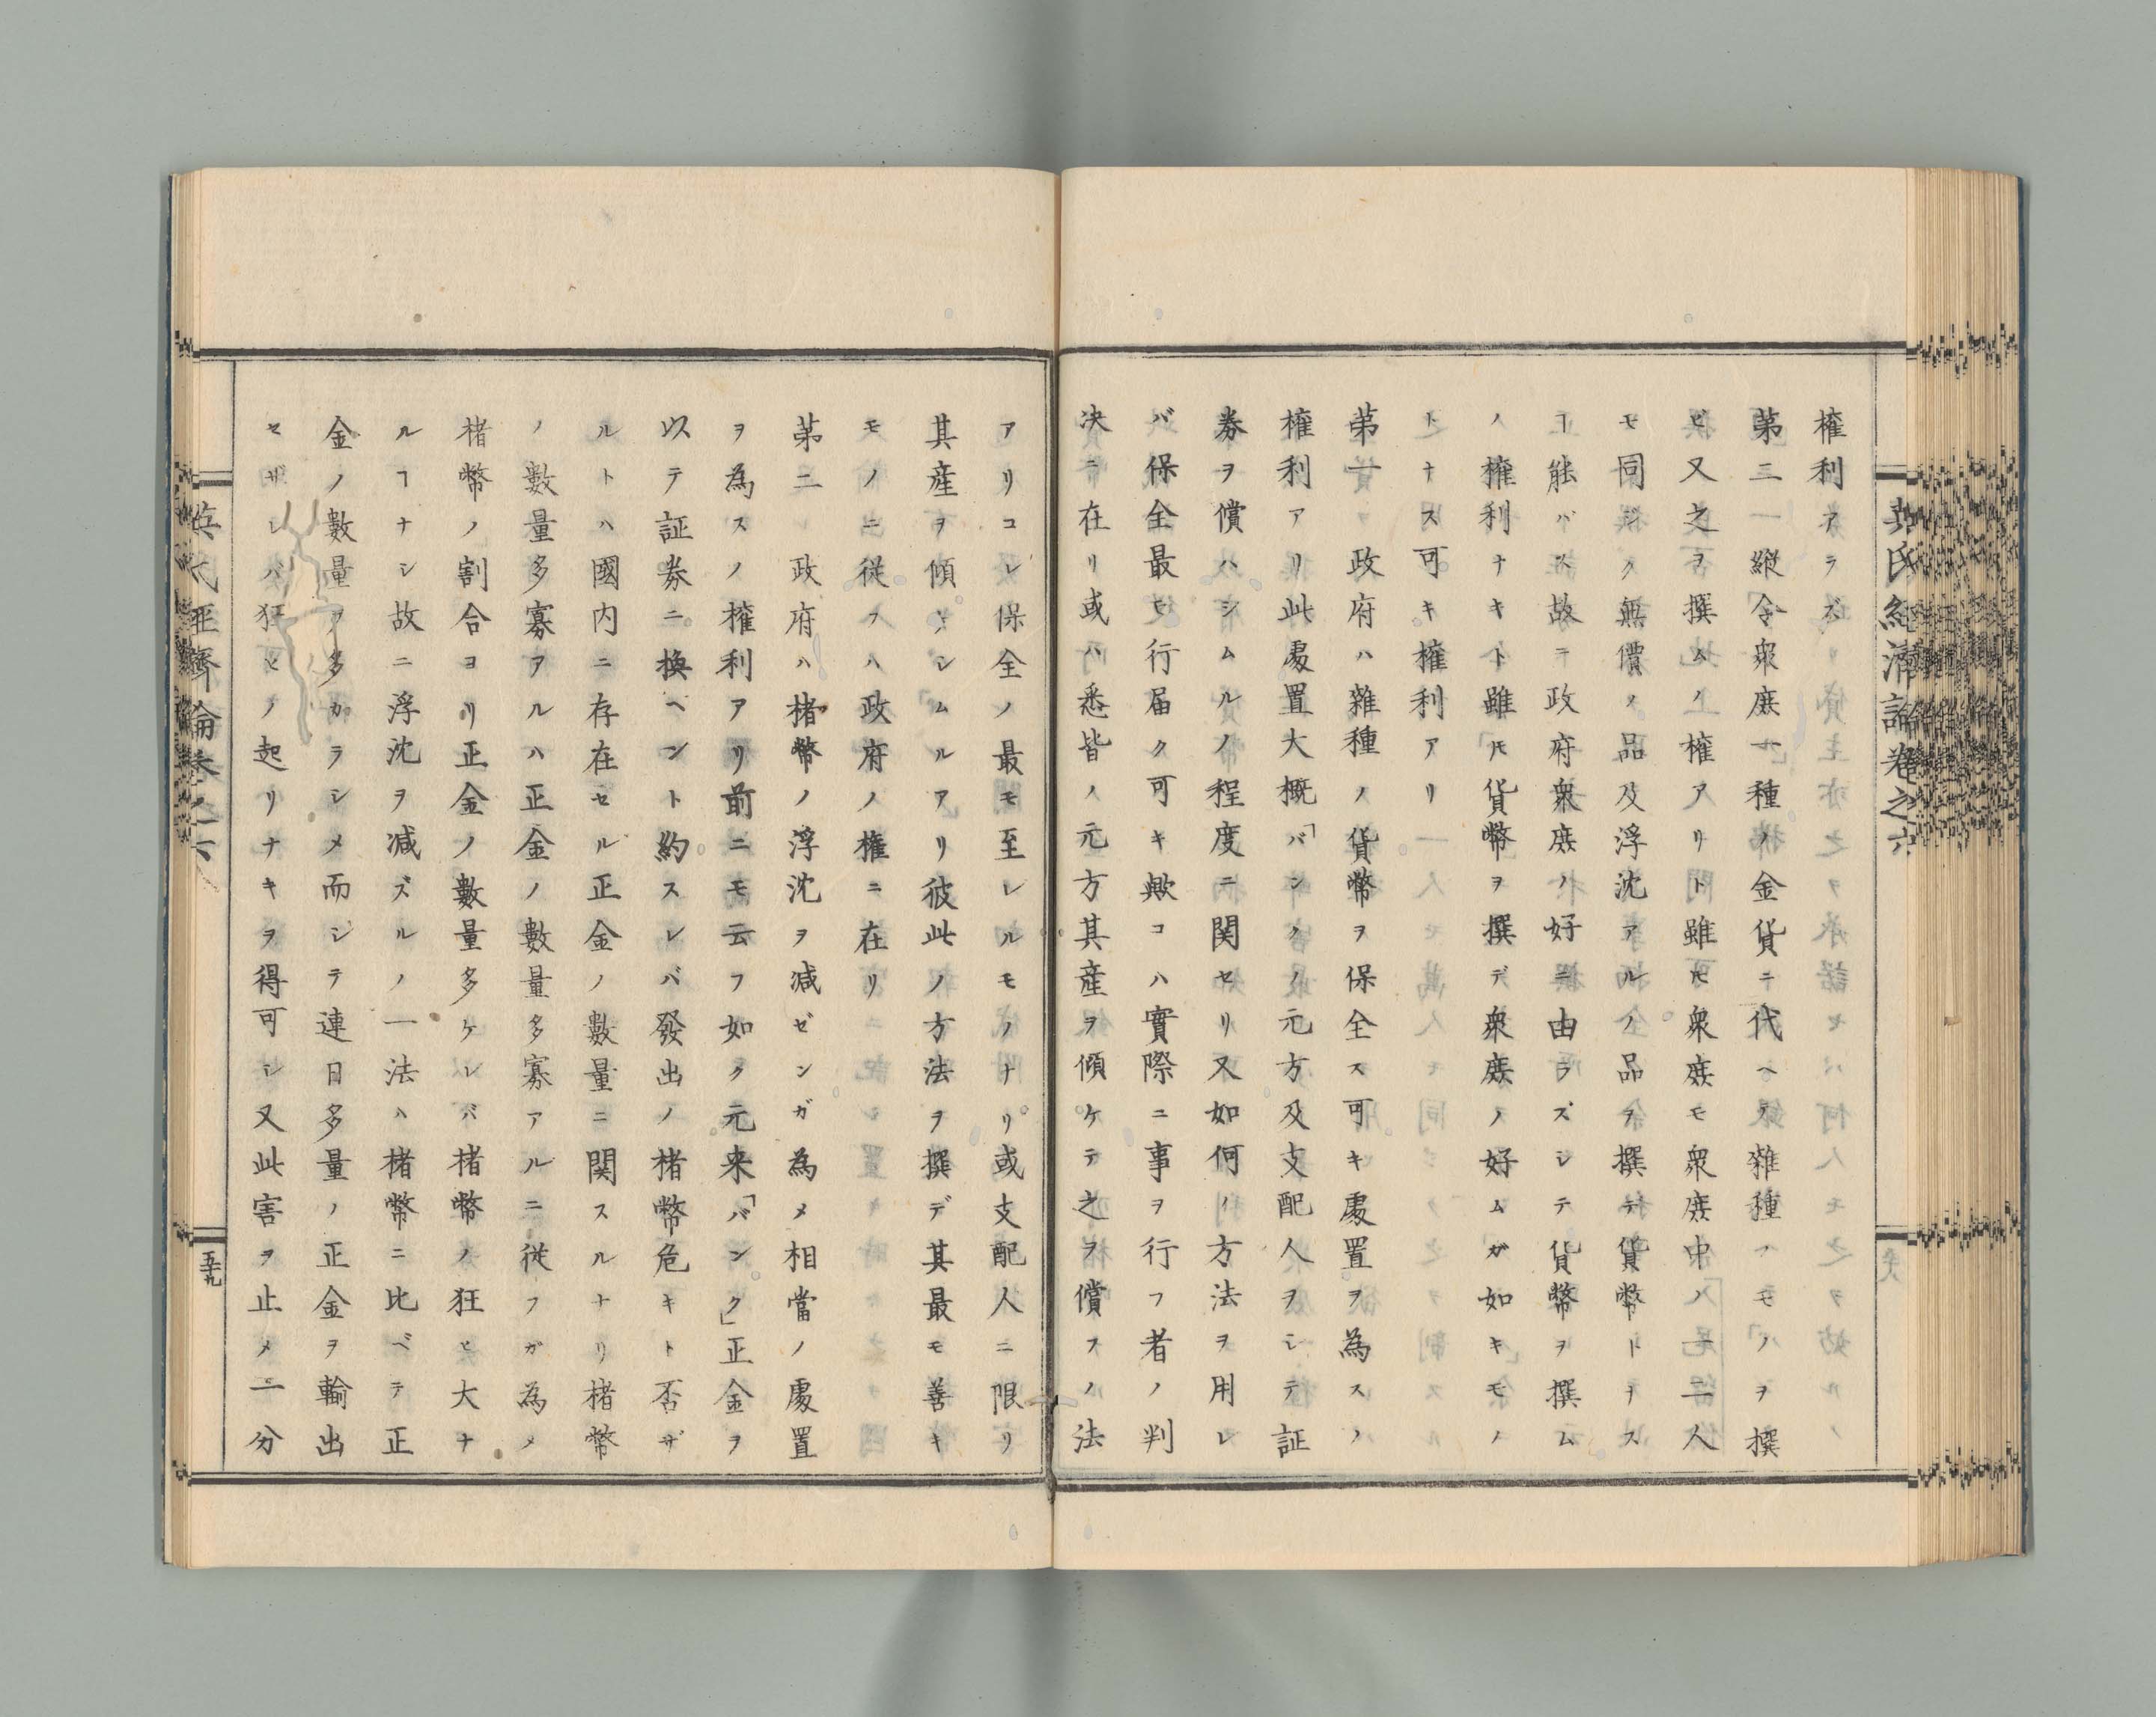 英氏経済論巻之六
権利アラズ
第三 縦令衆庶一種ノ金貨ニ代ヘテ雑種ノモノヲ撰
ビ又之ヲ撰ムノ権アリト雖𪜈衆庶モ衆庶中ノ一二人
モ同ジク無價ノ品及浮沈アルノ品ヲ撰テ貨幣トヲス
ヿ能バス故ニ政府衆庶ノ好ニ由ラズシテ貨幣ヲ撰ム
ノ権利ナキト雖𪜈貨幣ヲ撰デ衆庶ノ好ムガ如キモノ
トナス可キ権利アリ
第一 政府ハ雑種ノ貨幣ヲ保全ス可キ處置ヲ為スノ
権利アリ此處置大概「バンク」ノ元方及支配人ヲシテ証
券ヲ償ハシムルノ程度ニ関セリ又如何ノ方法ヲ用レ
バ保全最モ行届ク可キ歟コハ實際ニ事ヲ行フ者ノ判
决ニ在リ或ハ悉皆ノ元方其産ヲ傾ケテ之ヲ償フノ法
アリコレ保全ノ最モ至レルモノナリ或支配人ニ限リ
其産ヲ傾ケシムルアリ彼此ノ方法ヲ撰デ其最モ善キ
モノニ従フハ政府ノ権ニ在リ
第二 政府ハ楮幣ノ浮沈ヲ减ゼンガ為メ相當ノ處置
ヲ為スノ権利アリ前ニモ云フ如ク元来「バンク」正金ヲ
以テ証券ニ換ヘント約スレバ發出ノ楮幣危キト否ザ
ルトハ國内ニ存在セル正金ノ數量ニ関スルナリ楮幣
ノ數量多寡アルハ正金ノ數量多寡アルニ従フガ為メ
楮幣ノ割合ヨリ正金ノ數量多ケレバ楮幣ノ狂ヒ大ナ
ルヿナシ故ニ浮沈ヲ减ズルノ一法ハ楮幣ニ比ベテ正
金ノ數量ヲ多カラシメ而シテ連日多量ノ正金ヲ輸出
セザレバ狂ヒノ起リナキヲ得可シ又此害ヲ止メニ分
英氏経濟論巻之六
五十九